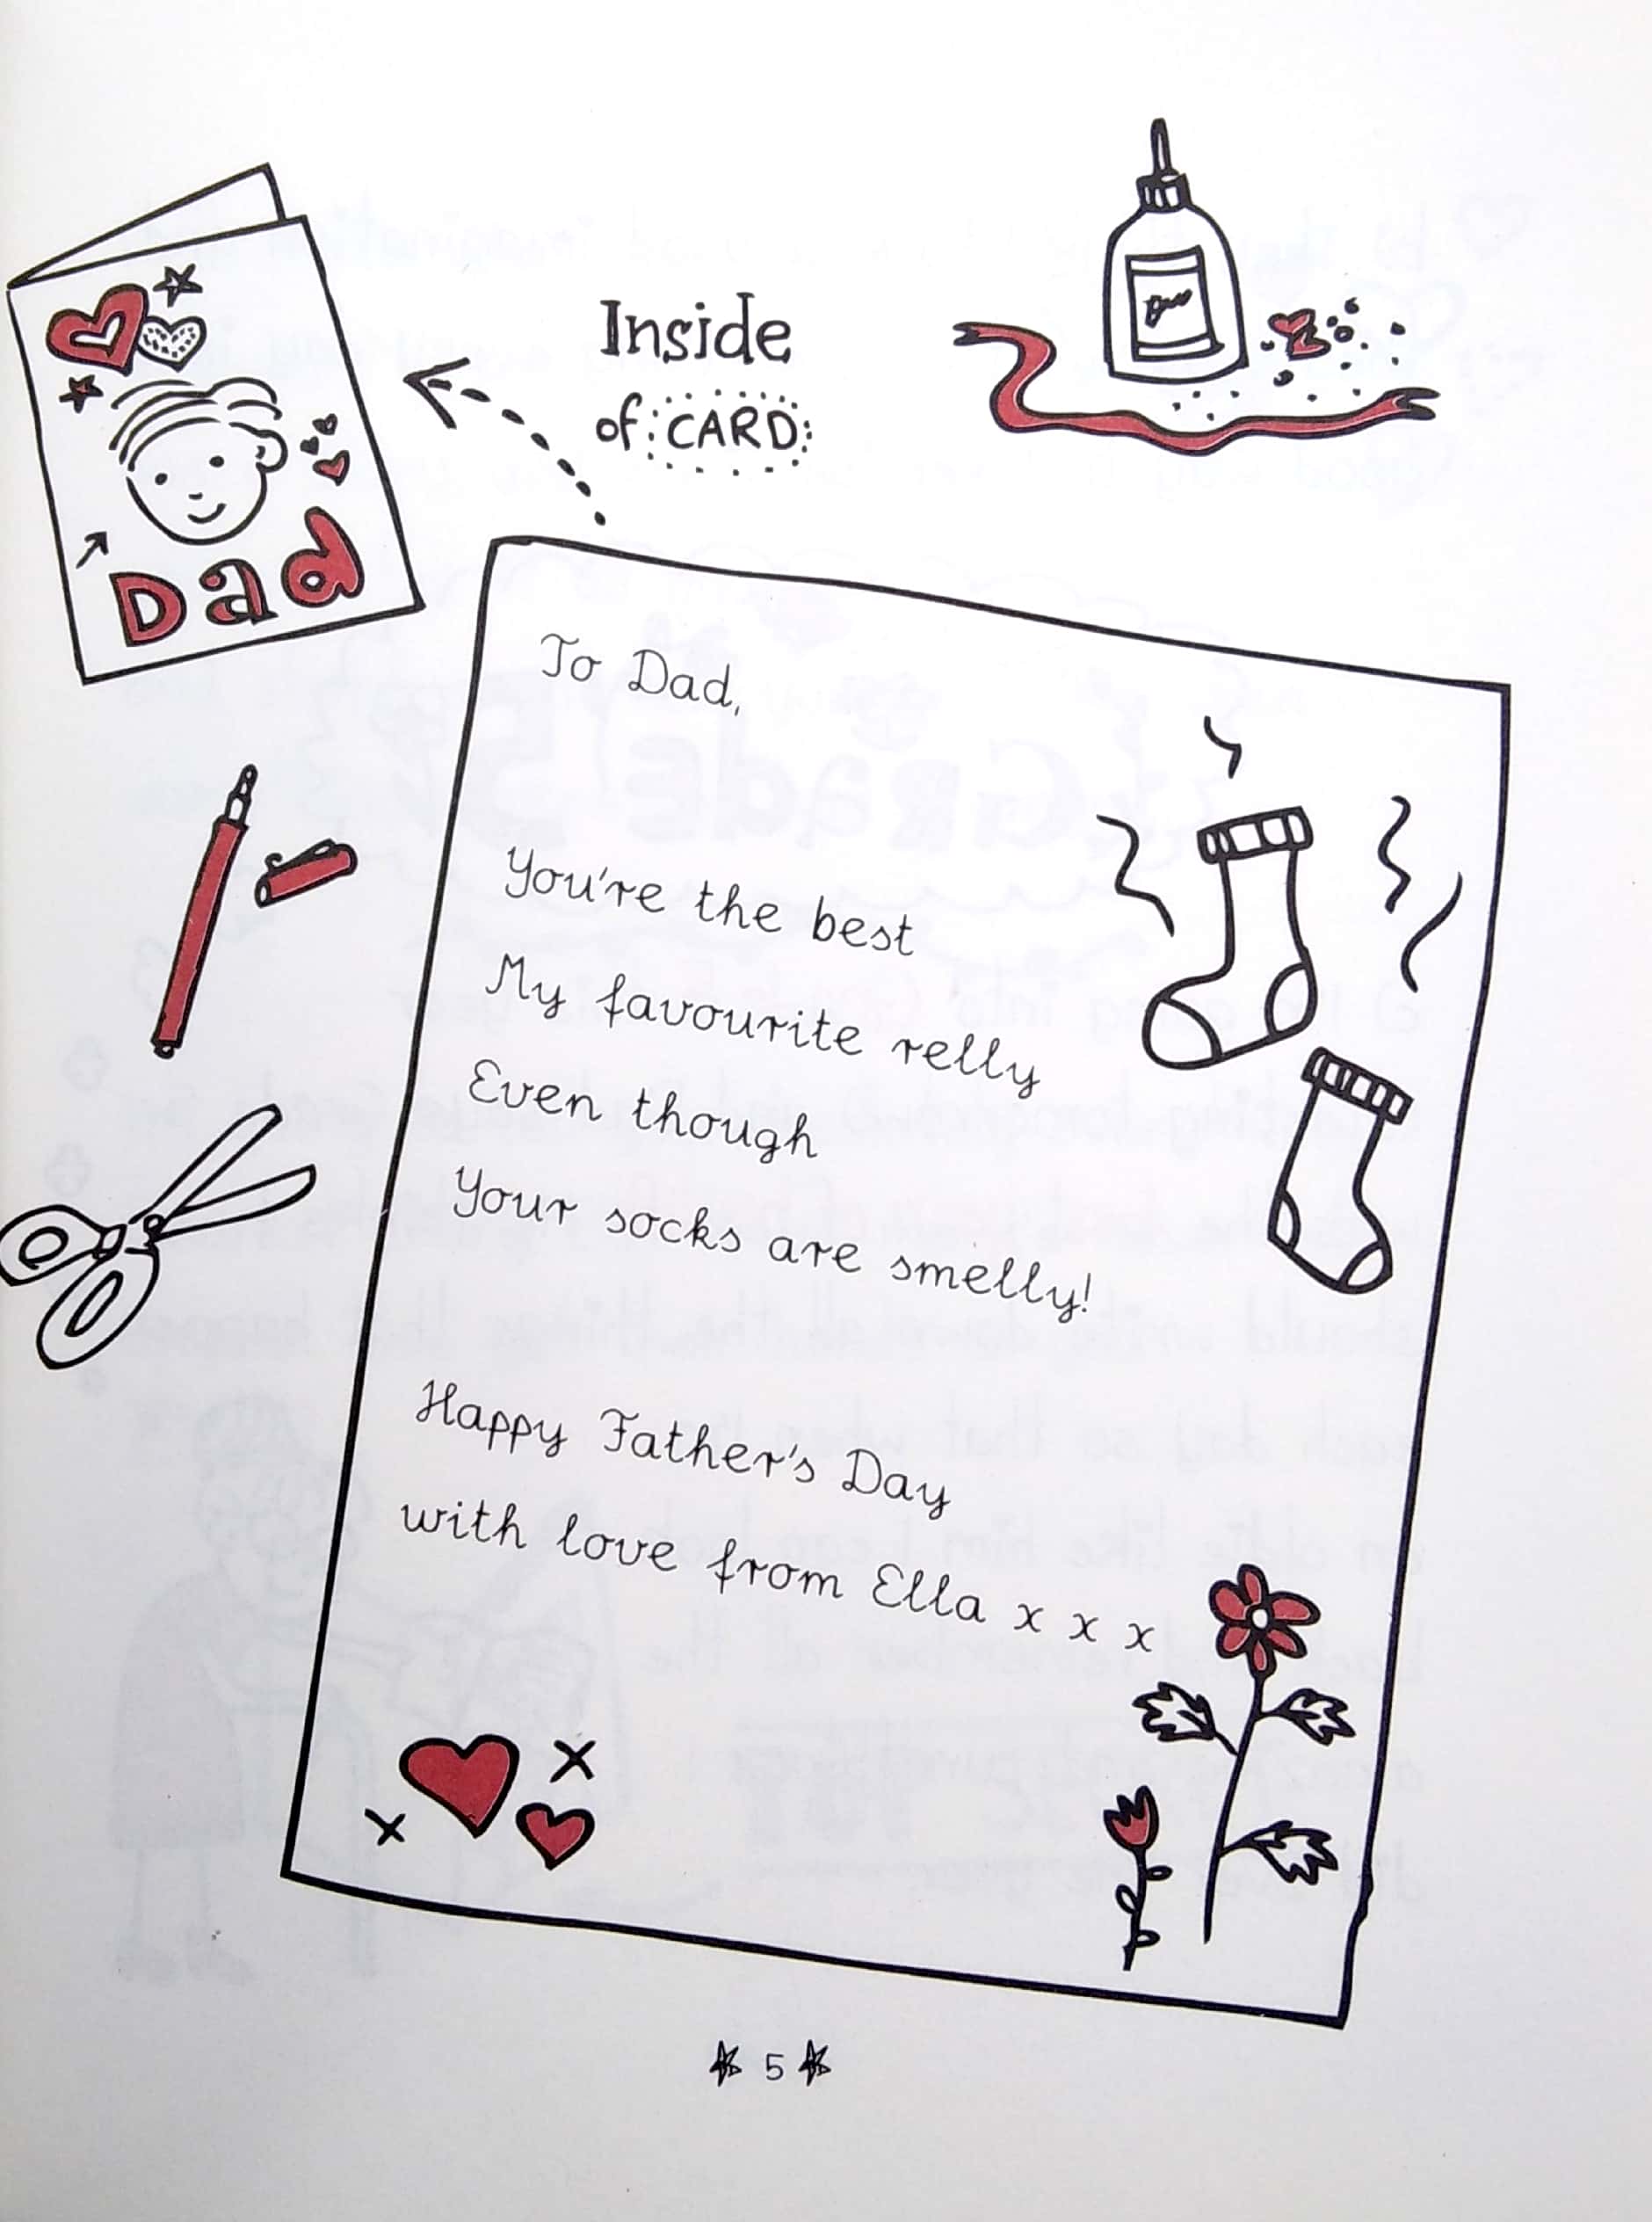 Inside
of CARD
Dad
To Dad,
You're the best
My favourite relly
Even though
Your socks are smelly!
Happy Father's Day
with love from Ella x x x
x
x
5